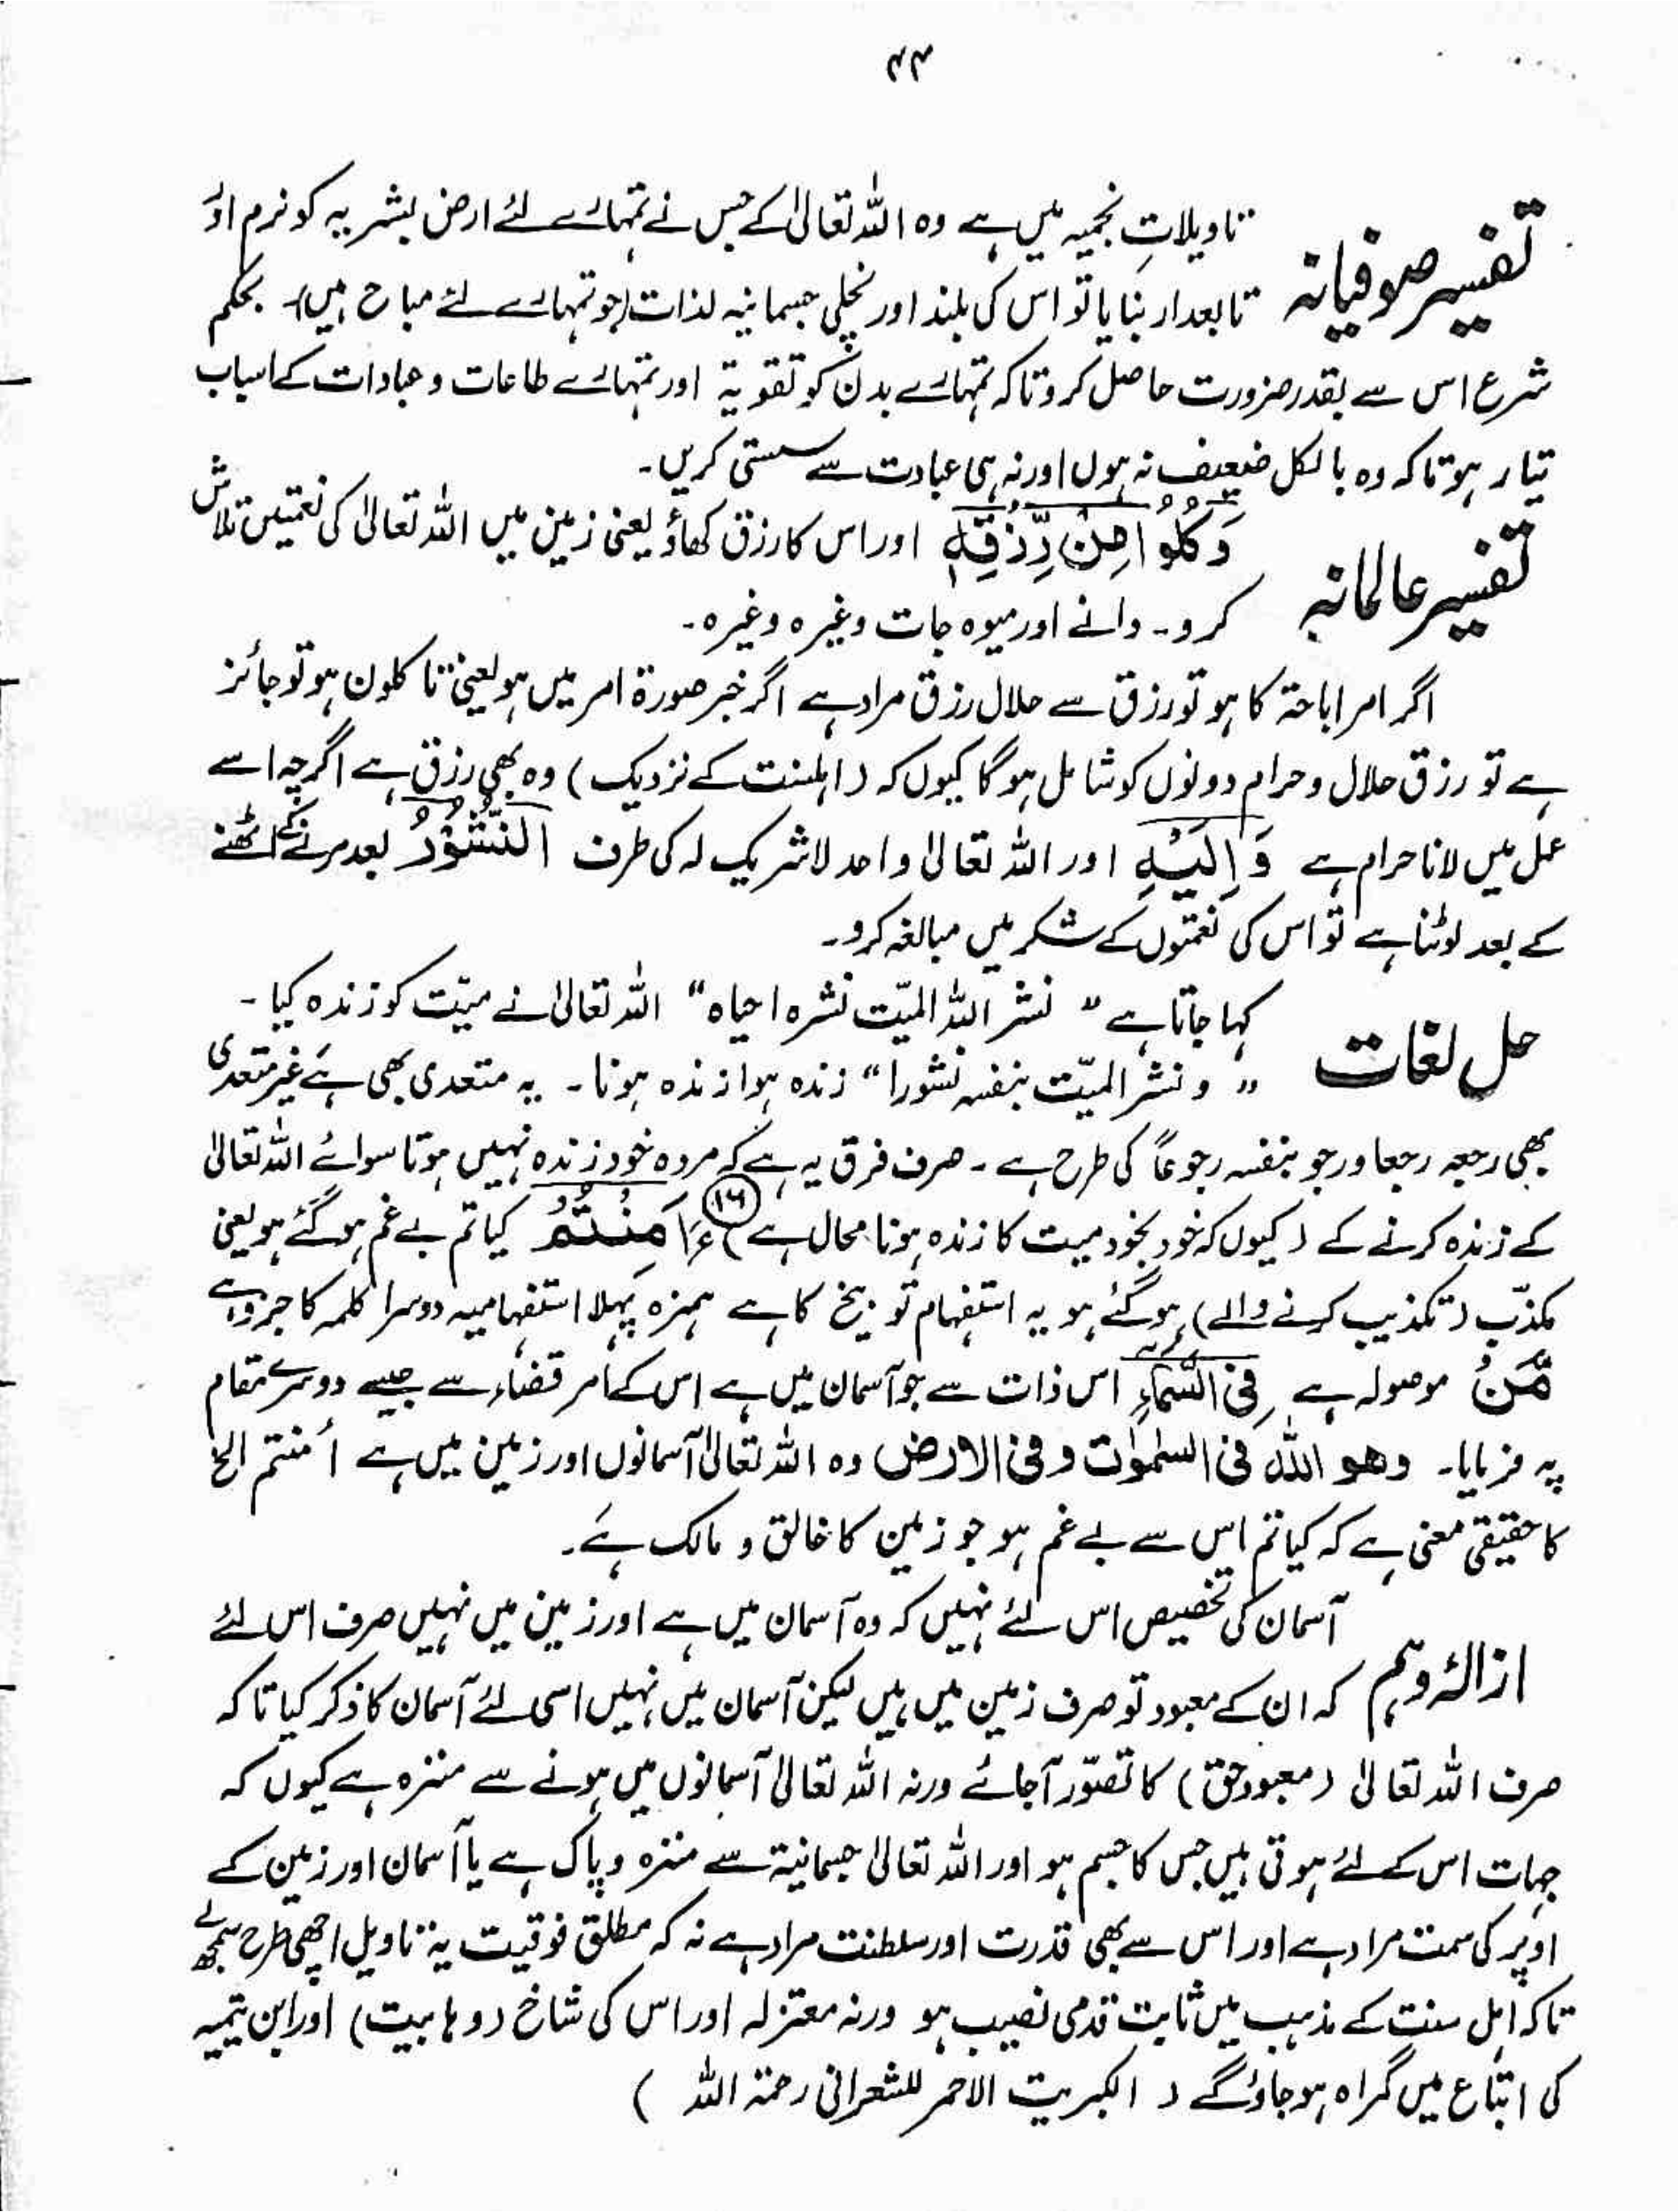 ۴۴
تفسیر صوفیانہ
تاویلاتِ نجمیہ میں ہے وہ اللہ تعالیٰ کے جس نے تمہارے لئے ارض بشریہ کو نرم اور
تابعدار بنایا تو اس کی بلند اور نچلی جسمانیہ لذات (جو تمہارے لئے مباح ہیں)۔ بحکم
شرع اس سے بقدر ضرورت حاصل کرو تاکہ تمہارے بدن کو تقویۃ اور تمہارے طاعات و عبادات کے اسباب
تیار ہو تاکہ وہ بالکل ضعیف نہ ہوں اور نہ ہی عبادت سے سستی کریں۔
تفسیر عالمانہ
وَكُلُوْا مِنْ رِّزْقِهٖ اور اس کا رزق کھاؤ یعنی زمین میں اللہ تعالیٰ کی نعمتیں تلاش
کرو۔ دانے اور میوہ جات وغیرہ وغیرہ۔
اگر امر اباحۃ کا ہو تو رزق سے حلال رزق مراد ہے اگر خبر صورۃ امر میں ہو یعنی تاکلون ہو تو جائز
ہے تو رزق حلال و حرام دونوں کو شامل ہوگا کیوں کہ (اہلسنت کے نزدیک) وہ بھی رزق ہے اگرچہ اسے
عمل میں لانا حرام ہے وَ اِلَيْهِ اور اللہ تعالیٰ واحد لاشریک لہ کی طرف النُّشُوْرُ بعد مرنے کے اٹھنے
کے بعد لوٹنا ہے تو اس کی نعمتوں کے شکر میں مبالغہ کرو۔
حل لغات
کہا جاتا ہے "نشر اللہ المیّت نشرہ احیاہ" اللہ تعالیٰ نے میّت کو زندہ کیا۔
"و نشر المیّت بنفسہ نشورا" زندہ ہوا زندہ ہونا۔ یہ متعدی بھی ہے غیر متعدی
بھی رجعہ رجعا ورجو بنفسہ رجوعاً کی طرح ہے۔ صرف فرق یہ ہے کہ مردہ خود زندہ نہیں ہوتا سوائے اللہ تعالیٰ
کے زندہ کرنے کے (کیوں کہ خود بخود میت کا زندہ ہونا محال ہے) ⑯ ءَاَمِنْتُمْ کیا تم بے غم ہو گئے ہو یعنی
مکذّب (تکذیب کرنے والے) ہو گئے ہو یہ استفہام توبیخ کا ہے ہمزہ پہلا استفہامیہ دوسرا کلمہ کا جزو ہے
مَّنْ موصولہ ہے فِی السَّمَآءِ اس ذات سے جو آسمان میں ہے اس کے امر قضاء سے جیسے دوسرے مقام
پہ فرمایا۔ وھو اللہ فی السمٰوٰت وفی الارض وہ اللہ تعالیٰ آسمانوں اور زمین میں ہے أمنتم الخ
کا حقیقی معنی ہے کہ کیا تم اس سے بے غم ہو جو زمین کا خالق و مالک ہے۔
ازالۂ وہم
آسمان کی تخصیص اس لئے نہیں کہ وہ آسمان میں ہے اور زمین میں نہیں صرف اس لئے
کہ ان کے معبود تو صرف زمین میں ہیں لیکن آسمان میں نہیں اسی لئے آسمان کا ذکر کیا تاکہ
صرف اللہ تعالیٰ (معبود حق) کا تصوّر آجائے ورنہ اللہ تعالیٰ آسمانوں میں ہونے سے منزہ ہے کیوں کہ
جہات اس کے لئے ہوتی ہیں جس کا جسم ہو اور اللہ تعالیٰ جسمانیۃ سے منزہ و پاک ہے یا آسمان اور زمین کے
اوپر کی سمت مراد ہے اور اس سے بھی قدرت اور سلطنت مراد ہے نہ کہ مطلق فوقیت یہ تاویل اچھی طرح سمجھ لے
تاکہ اہل سنت کے مذہب میں ثابت قدمی نصیب ہو ورنہ معتزلہ اور اس کی شاخ (وہابیت) اور ابن تیمیہ
کی اتباع میں گمراہ ہو جاؤ گے (الکبریت الاحمر للشعرانی رحمۃ اللہ)